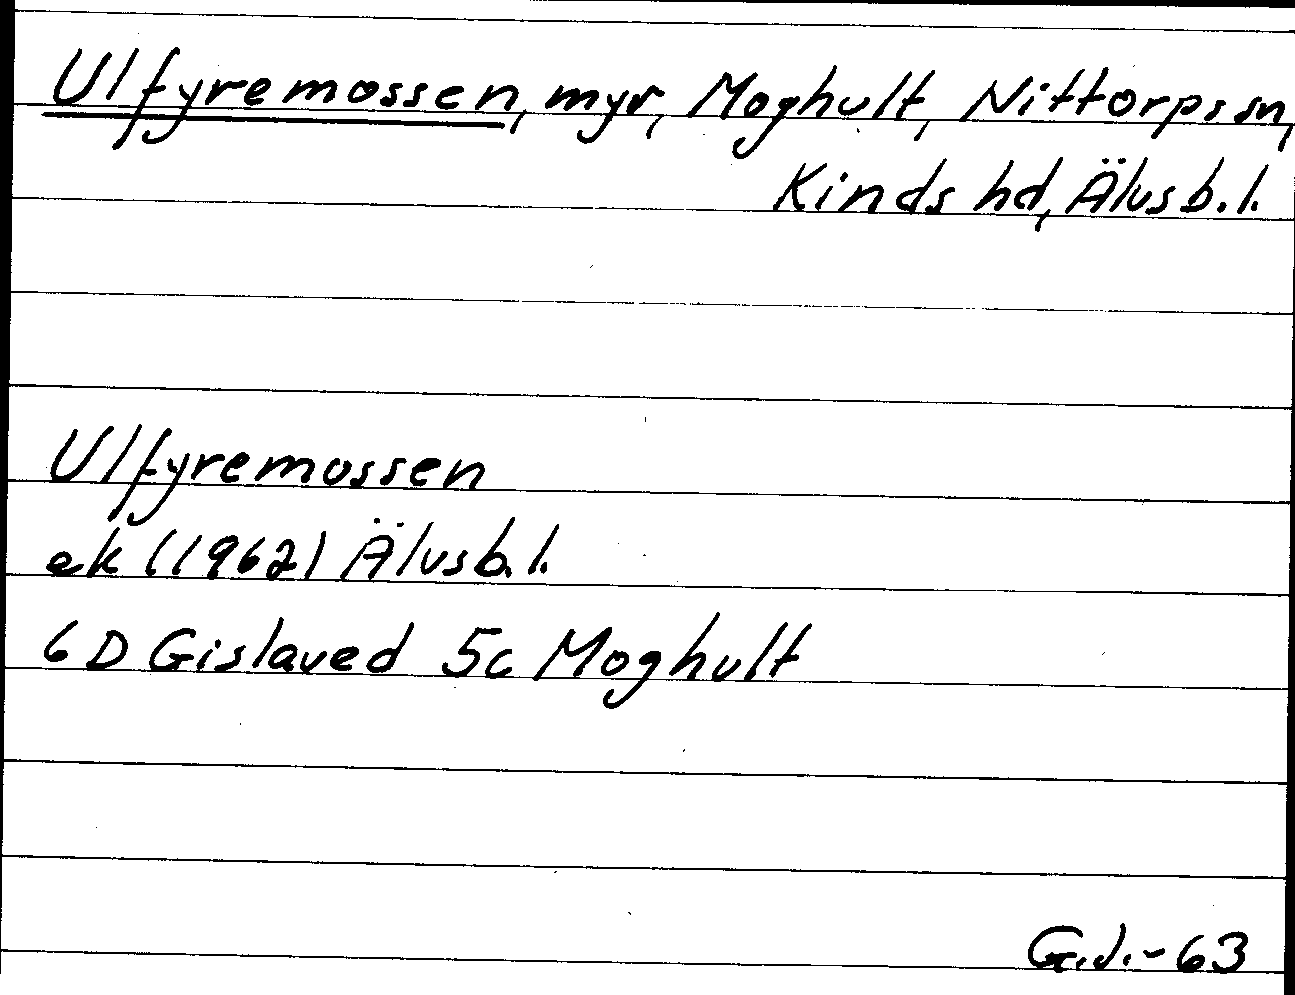 Ulfyremossen, myr, Moghult, Nittorps sn,
Kinds hd, Älvsb. l.
Ulfyremossen
ek (1962) Älvsb. l.
6D Gislaved 5c Moghult
G.J.-63